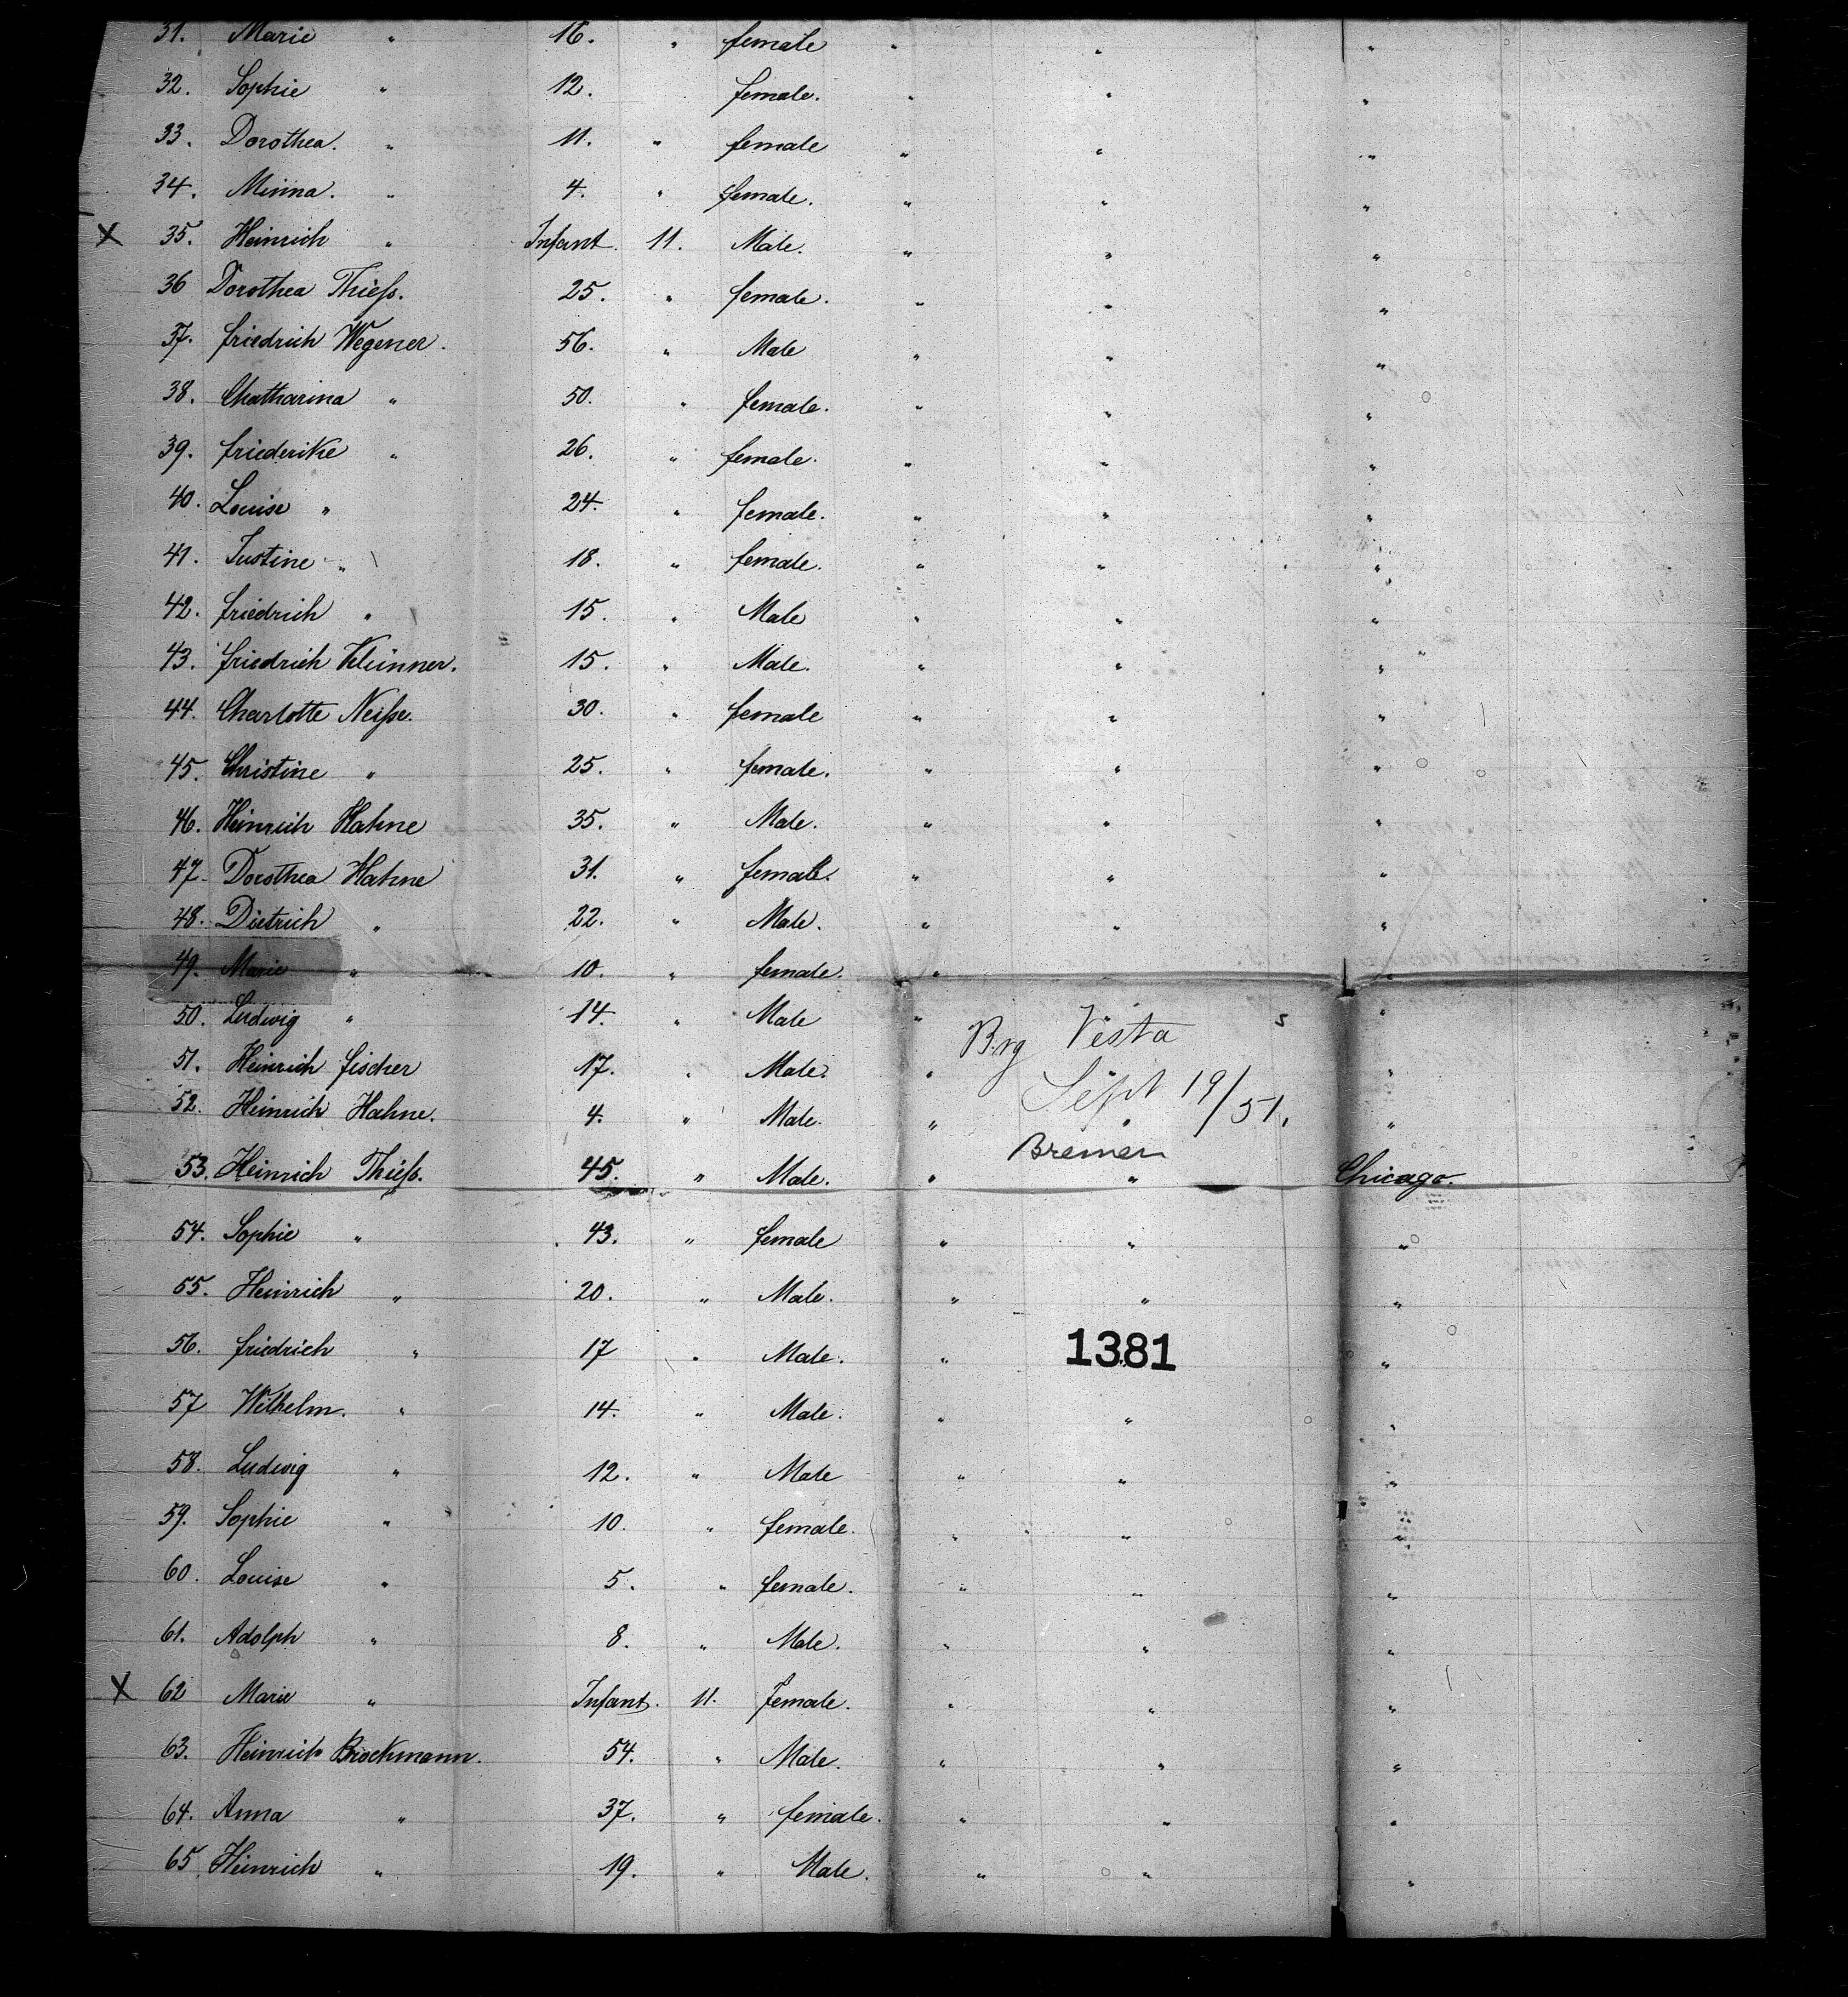 31. Marie " 16. " female " " "
32. Sophie " 12. female. " " "
33. Dorothea. " 11. " female " " "
34. Minna. " 4. " female. " " "
X 35. Heinrich " Infant. 11. Male. " " "
36 Dorothea Thieß. 25. " female. " " "
37. friedrich Wegener. 56. " Male " " "
38. Chatharina " 50. " female. " " "
39. friederike " 26. " female. " " "
40. Louise " 24. " female. " " "
41. Justine " 18. " female. " " "
42. friedrich " 15. " Male " " "
43. friedrich 15. " Male. " " "
44. Charlotte Neiße. 30. " female " " "
45. Christine " 25. " female. " " "
46. Heinrich Hahne 35. " Male. " " "
47. Dorothea Hahne 31. " female. " " "
48. Dietrich " 22. " Male. " " "
49. Marie " 10. " female. " "
50. Ludwig " 14. " Male " "
Brg Vesta
51. Heinrich fischer 17. " Male. " "
Sept 19/51.
52. Heinrich Hahne. 4. " Male. " " "
Bremen
53. Heinrich Thieß. 45. " Male. " " Chicago.
54. Sophie " 43. " female " " "
55. Heinrich " 20. " Male. " " "
56. friedrich " 17 " Male. " 1381 "
57 Wilhelm. " 14. " Male. " " "
58. Ludwig " 12. " Male " " "
59. Sophie " 10. " female. " " "
60. Louise " 5. " female. " " "
61. Adolph " 8. " Male. " " "
X 62 Marie " Infant. 11. female. " " "
63. Heinrich Brockmann. 54. " Male. " " "
64. Anna " 37. " female. " " "
65 Heinrich " 19. " Male. " " "